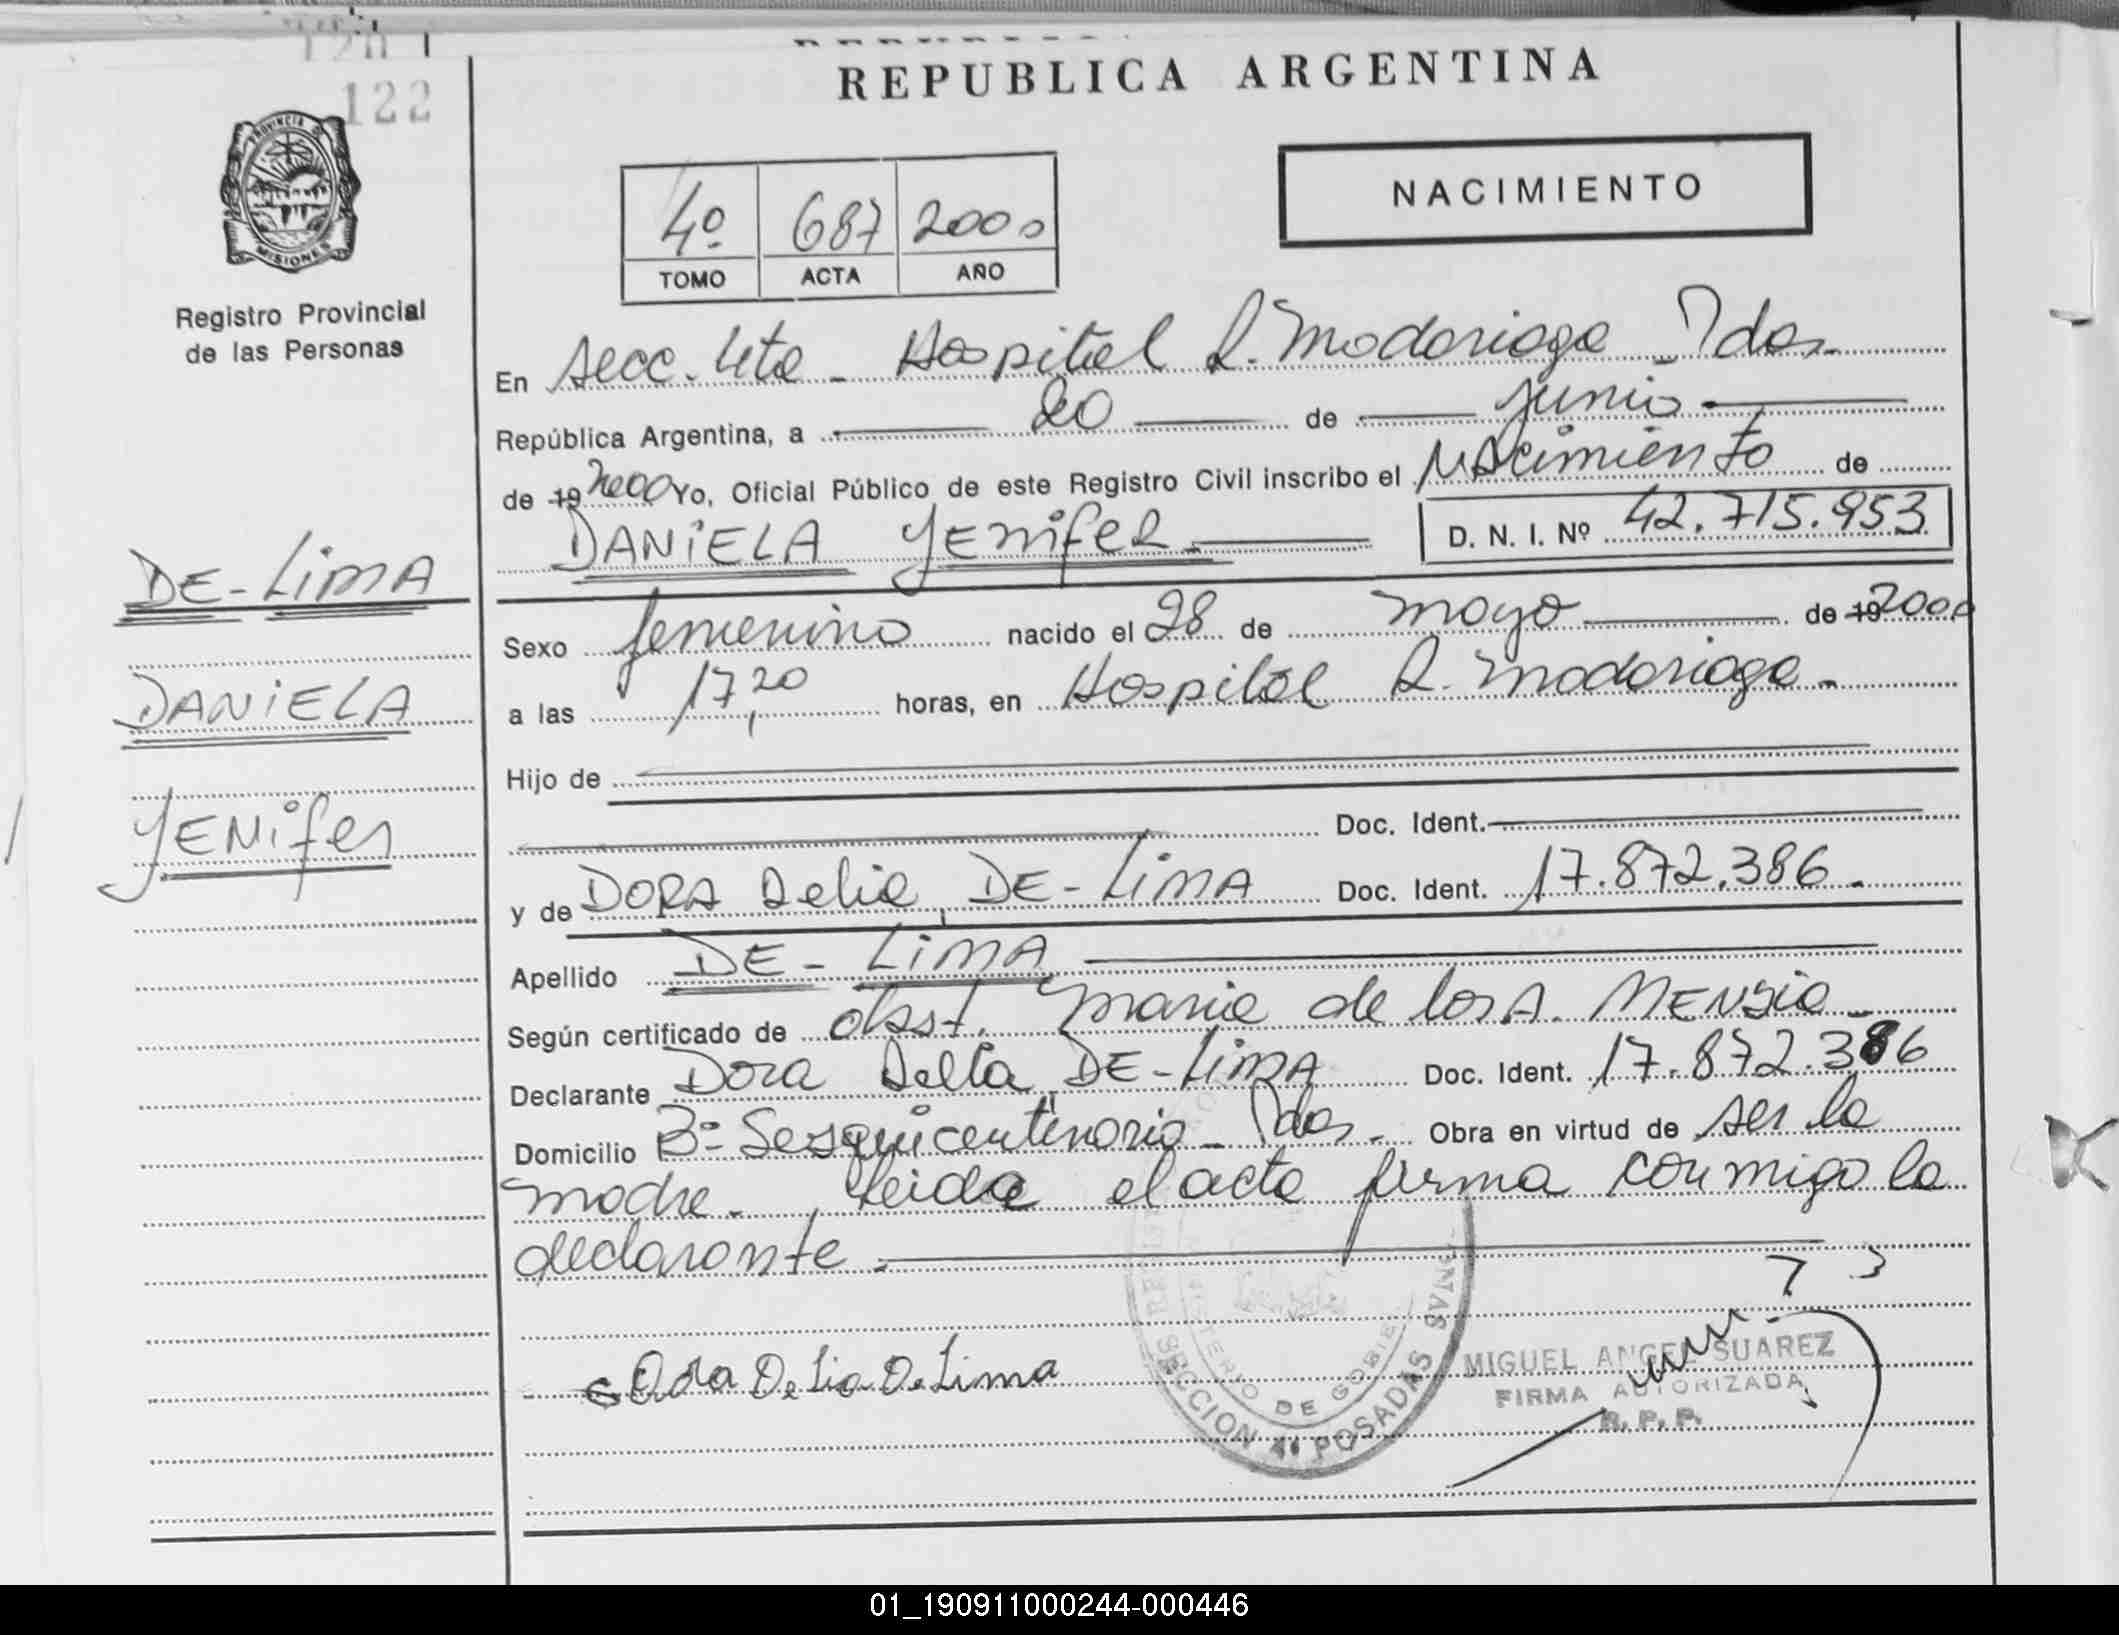 122
REPUBLICA ARGENTINA
PROVINCIA DE
MISIONES
Registro Provincial
de las Personas
4º 687 2000
TOMO ACTA AÑO
NACIMIENTO
En Secc. 4ta - Hospital R. Madariaga - Pdas.
República Argentina, a 20 de junio
de 19 2000 Yo, Oficial Público de este Registro Civil inscribo el Nacimiento de
DANIELA YENifER D. N. I. Nº 42.715.953
DE-LiMA
DANiELA
YENifer
Sexo femenino nacido el 28 de mayo de 19 2000
a las 17,20 horas, en Hospital R. Madariaga.-
Hijo de
Doc. Ident.
y de DORA Delia DE-LiMA Doc. Ident. 17.872.386.
Apellido DE-LiMA
Según certificado de obst. Maria de los A.
Declarante Dora Delia DE-LiMA Doc. Ident. 17.872.386
Domicilio Bº Sesquicentenario - Pdas. Obra en virtud de ser la
madre. Leida el acta firma conmigo la
declarante.
Dora Delia De Lima
MINISTERIO DE GOBIE
SECCION 4ª POSADAS
MIGUEL ANGEL SUAREZ
FIRMA AUTORIZADA
R. P. P.
01_190911000244-000446